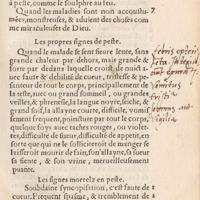 à peste, comme le soulphre au feu.
Quand les maladies sont non accoustu-
mées, monstreuses, & aduient des choses com
me miraculeuses de Dieu.
Les propres signes de peste.
Quand le malade se sent fieure lente, sans
grande chaleur par dehors, mais grande &
forte par dedans laquelle croit de nuict auec
faute & debilité de cueur, tristesse & pe-
santeur de tout le corps, principalement de
la teste, auec ou grand sommeil, ou grandes
veilles, & phrenesie, la langue noyre, seiche, &
grand soif, la allayne courte, difficile, vomisse
ment frequent, poincture par tout le corps, ou
quelque foys auec taches rouges, ou violet-
tes, defaillement de cueur & d'appetit, en for
te que les follicitent de manger le
laisseroit mourir de fain, son allayne, sa sueur
sa fiente, & son vrine, merueilleusement
puante.
Les signes mortelz en peste.
Soudaine syncopisation, c'est faute de
cueur, Frequent spasme, & tremblement de
febris
vomitus